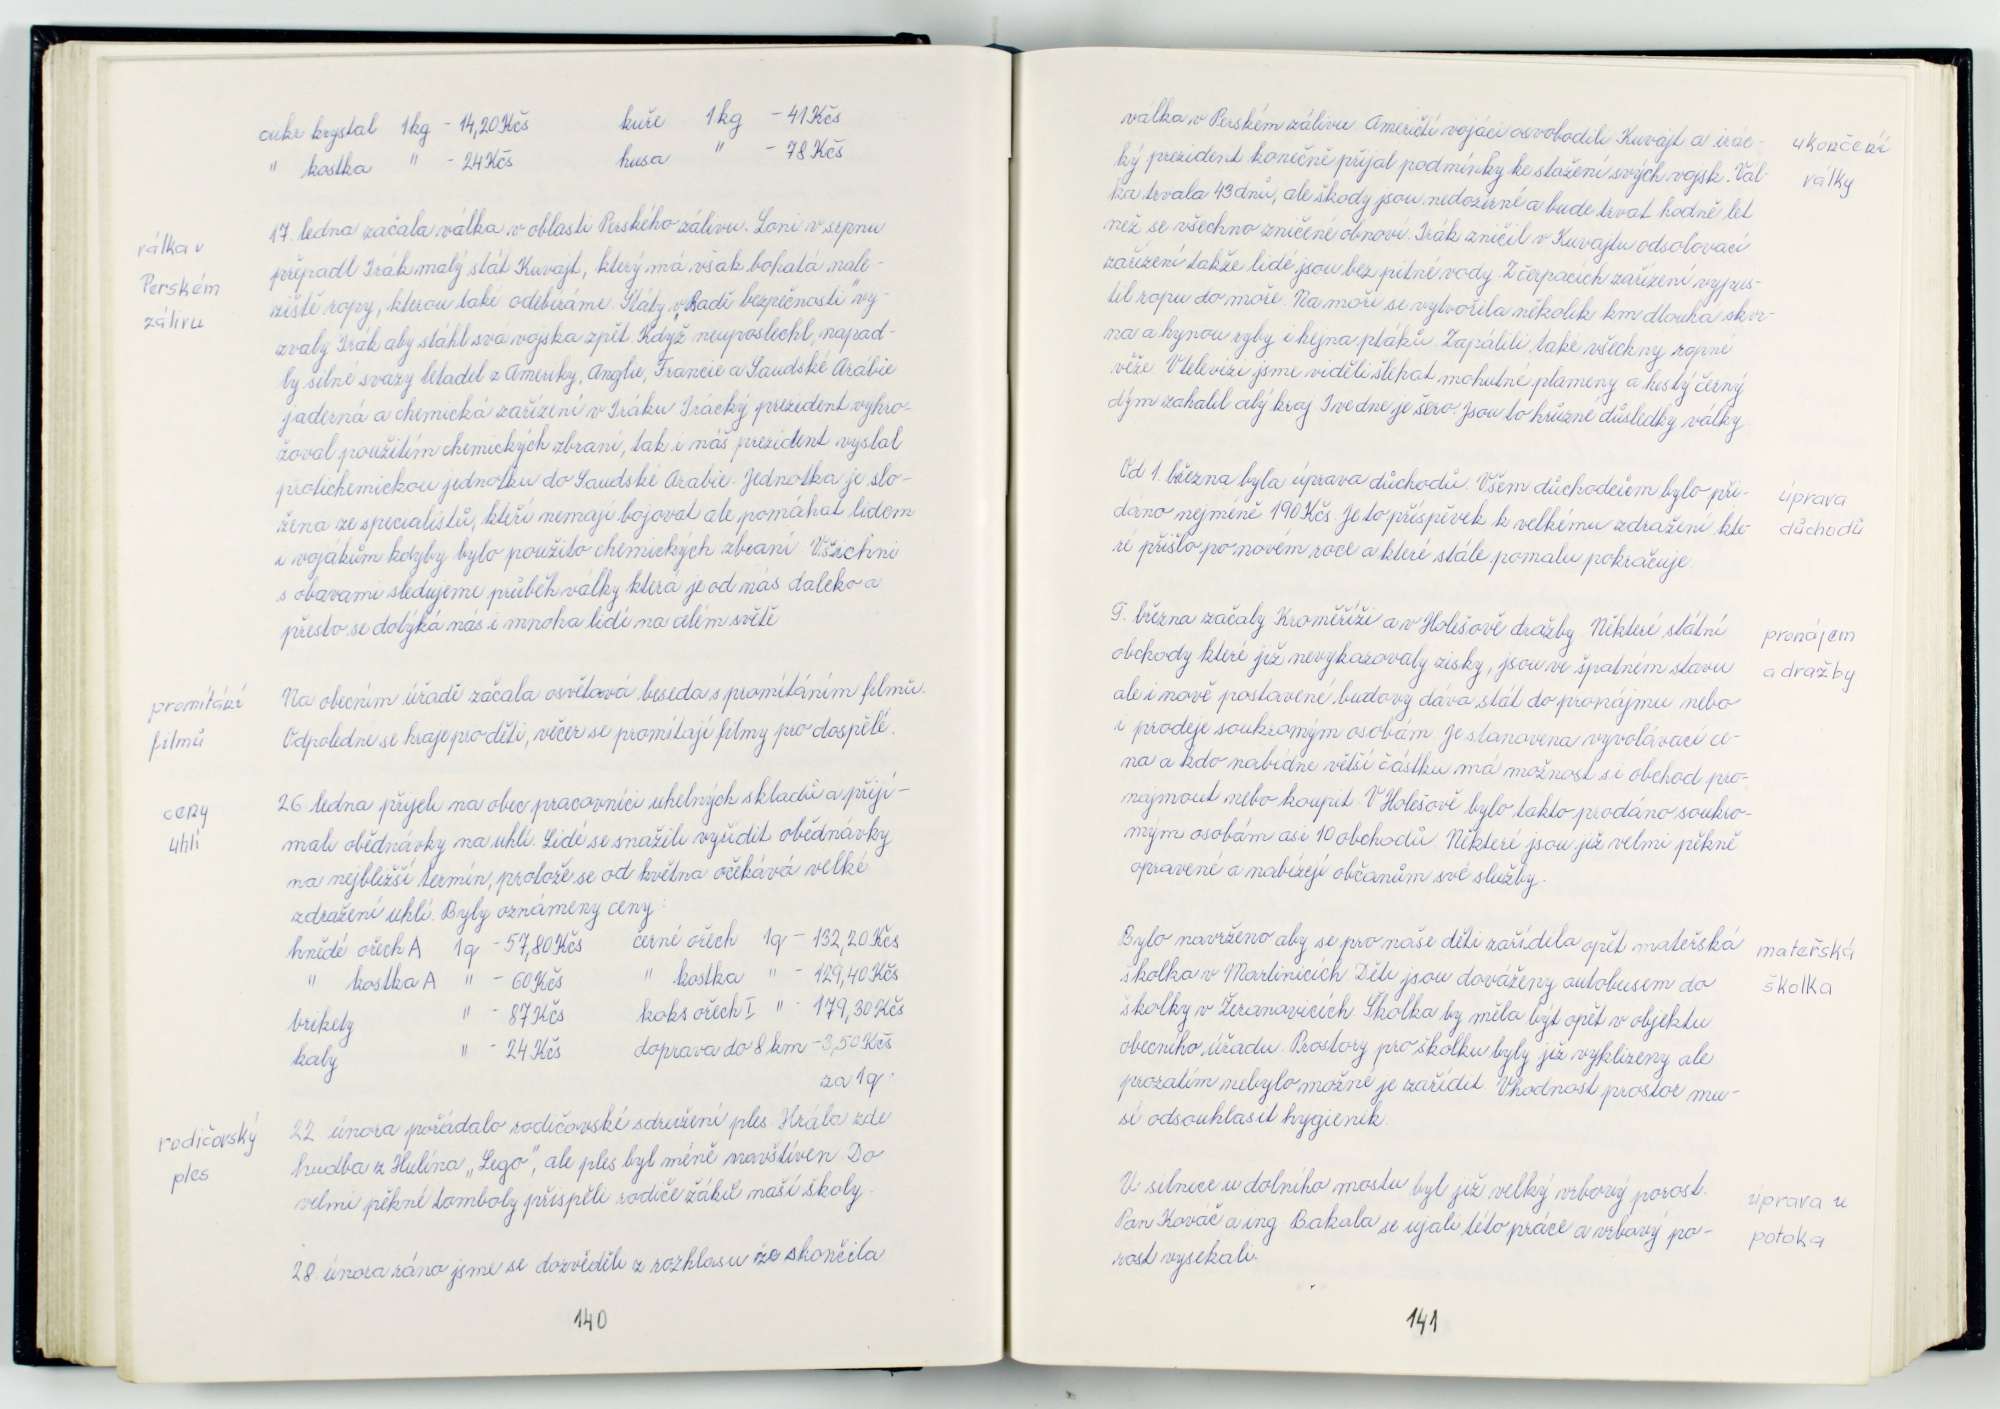 cukr krystal 1kg - 14,20 Kčs kuře 1kg - 41 Kčs
" kostka " - 24 Kčs husa " - 78 Kčs
válka v
Perském
zálivu
17. ledna začala válka v oblasti Perského zálivu. Loni v srpnu
přepadl Irák malý stát Kuvajt, který má však bohatá nale-
ziště ropy, kterou také odebíráme. Státy v „Radě bezpečnosti" vy-
zvaly Irák aby stáhl svá vojska zpět. Když neuposlechl, napad-
ly silné svazy letadel z Ameriky, Anglie, Francie a Saudské Arábie
jaderná a chemická zařízení v Iráku. Irácký prezident vyhro-
žoval použitím chemických zbraní, tak i náš prezident vyslal
protichemickou jednotku do Saudské Arabie. Jednotka je slo-
žena ze specialistů, kteří nemají bojovat ale pomáhat lidem
i vojákům kdyby bylo použito chemických zbraní. Všichni
s obavami sledujeme průběh války která je od nás daleko a
přesto se dotýká nás i mnoha lidí na celém světě
promítání
filmů
Na obecním úřadě začala osvětová beseda s promítáním filmů.
Odpoledne se hraje pro děti, večer se promítají filmy pro dospělé.
ceny
uhlí
26. ledna přijeli na obec pracovníci uhelných skladů a přijí-
mali obědnávky na uhlí. Lidé se snažili vyřídit obědnávky
na nejbližší termín, protože se od května očekává velké
zdražení uhlí. Byly oznámeny ceny:
hnědé ořech A 1q - 57,80 Kčs černé ořech 1q - 132,20 Kčs
" kostka A " - 60 Kčs " kostka " - 129,40 Kčs
brikety " - 87 Kčs koks ořech I " - 179,30 Kčs
kaly " - 24 Kčs doprava do 8 km - 3,50 Kčs
za 1q.
rodičovský
ples
22. února pořádalo rodičovské sdružení ples. Hrála zde
hudba z Hulína „Lego", ale ples byl méně navštíven. Do
velmi pěkné tomboly přispěli rodiče žáků naší školy.
28. února ráno jsme se dozvěděli z rozhlasu že skončila
140
válka v Perském zálivu. Američtí vojáci osvobodili Kuvajt a irác-
ký prezident konečně přijal podmínky ke stažení svých vojsk. Vál-
ka trvala 43 dnů, ale škody jsou nedozírné a bude trvat hodně let
než se všechno zničené obnoví. Irák zničil v Kuvajtu odsolovací
zařízení takže lidé jsou bez pitné vody. Z čerpacích zařízení vypus-
til ropu do moře. Na moři se vytvořila několik km dlouhá skvr-
na a hynou ryby i hejna ptáků. Zapálili také všechny ropné
věže. V televizi jsme viděli šlehat mohutné plameny a hustý černý
dým zahalil celý kraj. I ve dne je šero. Jsou to hrůzné důsledky války.
ukončení
války
Od 1. března byla úprava důchodů. Všem důchodcům bylo při-
dáno nejméně 190 Kčs. Je to příspěvek k velkému zdražení kte-
ré přišlo po novém roce a které stále pomalu pokračuje.
úprava
důchodů
9. března začaly Kroměříži a v Holešově dražby. Některé státní
obchody které již nevykazovaly zisky, jsou ve špatném stavu
ale i nově postavené budovy dává stát do pronájmu nebo
i prodeje soukromým osobám. Je stanovena vyvolávací ce-
na a kdo nabídne větší částku má možnost si obchod pro-
najmout nebo koupit. V Holešově bylo takto prodáno soukro-
mým osobám asi 10 obchodů. Některé jsou již velmi pěkně
opravené a nabízejí občanům své služby.
pronájem
a dražby
Bylo navrženo aby se pro naše děti zařídila opět mateřská
školka v Martinicích. Děti jsou dováženy autobusem do
školky v Žeranovicích. Školka by měla být opět v objektu
obecního úřadu. Prostory pro školku byly již vyklizeny ale
prozatím nebylo možné je zařídit. Vhodnost prostor mu-
sí odsouhlasit hygienik.
mateřská
školka
U silnice u dolního mostu byl již velký vrbový porost.
Pan Kováč a ing. Bakala se ujali této práce a vrbový po-
rost vysekali.
úprava u
potoka
141